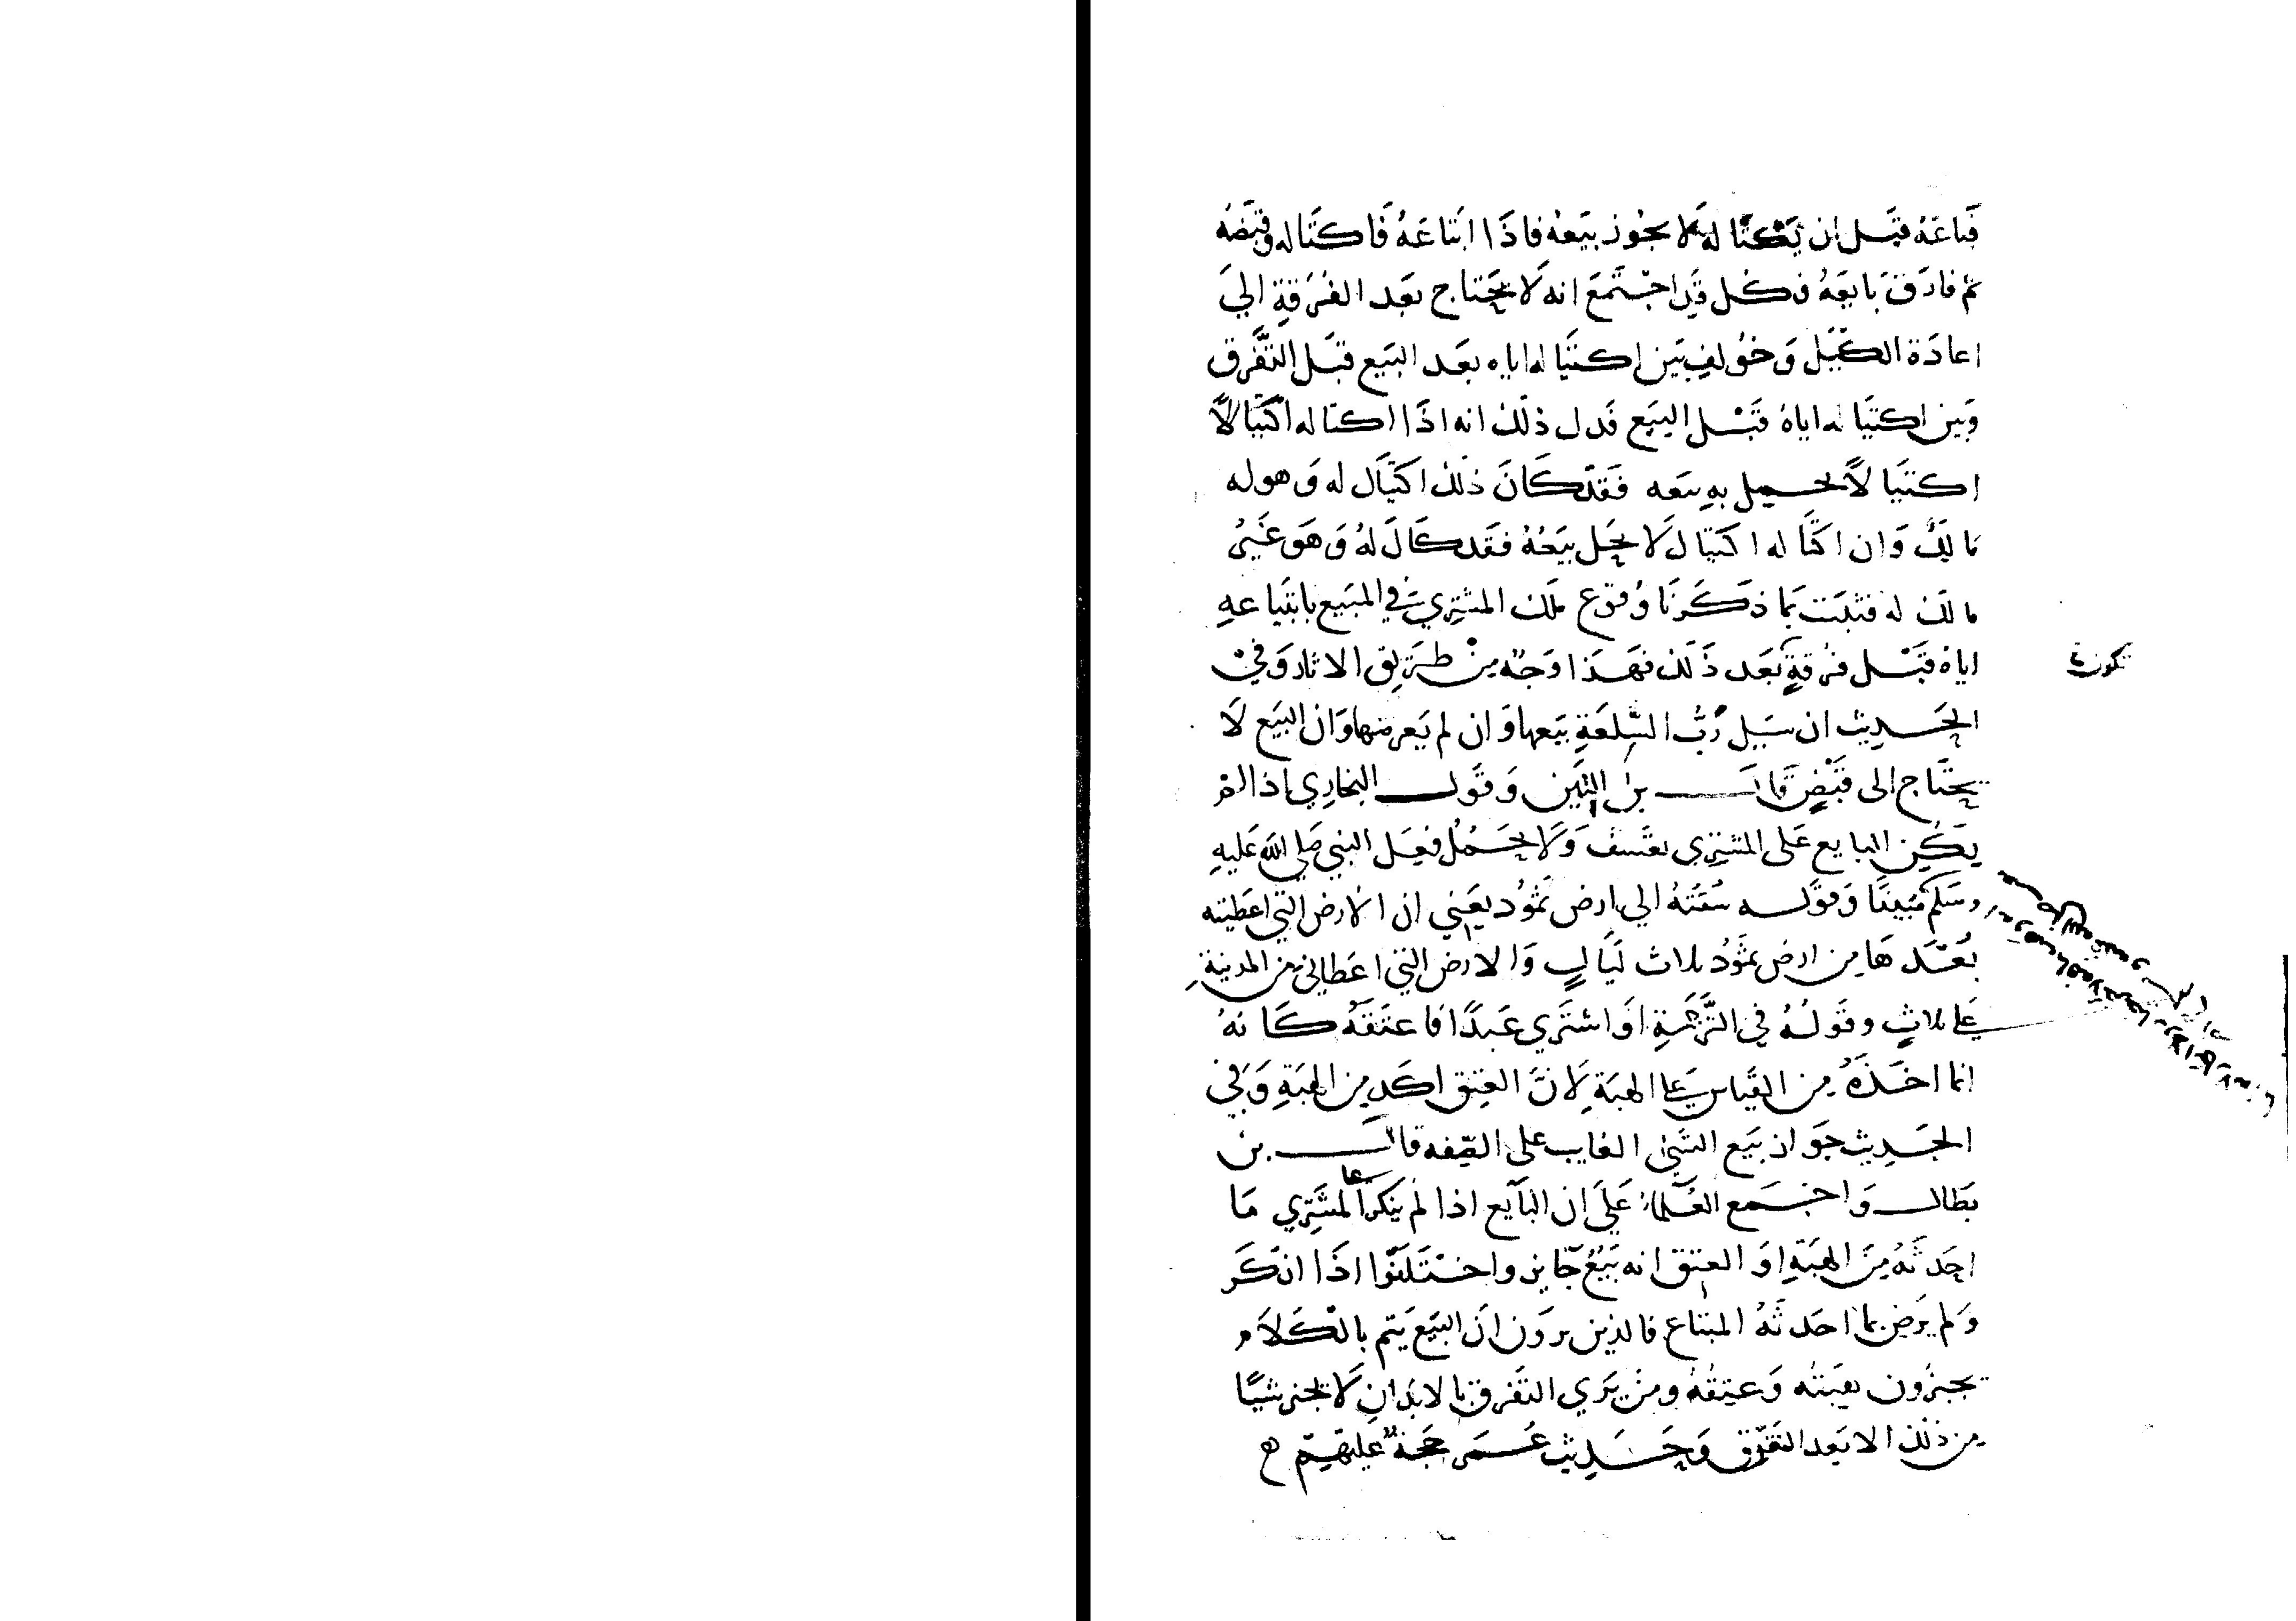 فباعه قبل ان يكتاله لا يجوز بيعه فاذا ابتاعه فاكتاله وقبضه
ثم فارق بايعه فكل قد اجتمع انه لا يحتاج بعد الفرقة الي
اعادة الكيل وخولف بين اكتياله اياه بعد البيع قبل التفرق
وبين اكتياله اياه قبل البيع فدل ذلك انه اذا اكتاله اكتيالا
اكتيالا يحل به بيعه فقد كان ذلك اكتيال له وهو له
مالك وان اكتاله اكتيال لا يحل بيعه فقد كال له وهو غير
مالك له فثبت بما ذكرنا وقوع ملك المشتري في المبيع بابتياعه
اياه قبل فرقة بعد ذلك فهذا وجه من طريق الاثار وفي
تكون
الحديث ان سبيل رب السلعة بيعها وان لم يعرضها وان البيع لا
يحتاج الى قبض قال بن التين وقول البخاري اذا لم
يكن البايع على المشتري تعسف ولا يحمل فعل النبي صلي الله عليه
وسلم مبينا وقوله سقته الي ارض ثمود يعني ان الارض التي اعطيته
بعدها من ارض ثمود ثلاث ليال والارض التي اعطاني من المدينة
علي ثلاث وقوله في الترجمة او اشتري عبدا فاعتقه كانه
انما اخذه من القياس علي الهبة لان العتق اكد من الهبة وفي
الحديث جواز بيع الشي الغايب على الصفه قال بن
بطال واجمع العلماء علي ان البايع اذا لم ينكر علي المشتري ما
احدثه من الهبة او العتق انه بيع جايز واختلفوا اذا انكر
ولم يرض بما احدثه المبتاع فالذين يرون ان البيع يتم بالكلام
يجيزون هبته وعتقه ومن يري التفرق بالابدان لا يجيز شيًا
من ذلك الا بعد التفرق وحديث عمر حجة عليهم ه